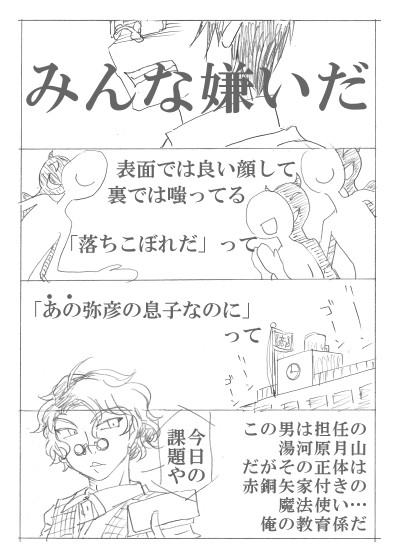 みんな嫌いだ
表面では良い顔して
裏では嗤ってる
「落ちこぼれだ」って
「あの弥彦の息子なのに」
って
ゴーン
ゴーン
ゴーン
この男は担任の
湯河原月山
だがその正体は
赤銅矢家付きの
魔法使い…
俺の教育係だ
今日の
課題や